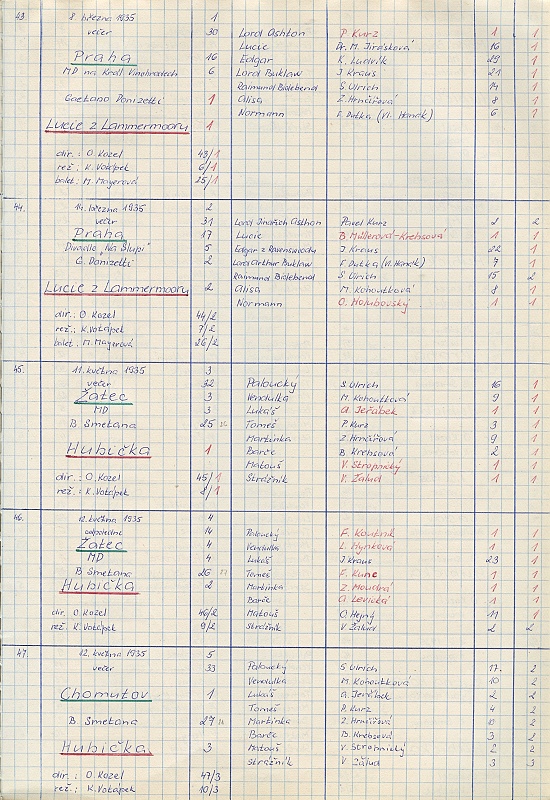 43. 8. března 1935 1
večer 30 Lord Ashton P. Kurz 1 1
Lucie Dr. M. Jirásková 16 1
Praha 16 Edgar K. Ludvík 29 1
MD na Král Vinohradech 6 Lord Buklaw J. Kraus 21 1
Raimund Bidebend S Ulrich 14 1
Gaetano Donizetti 1 Alisa Z. Hrnčířová 8 1
Normann F. Dutka (Vl. Hanák) 6 1
Lucie z Lammermooru 1
dir.: O. Kozel 43/1
rež.: K. Votápek 6/1
balet.: M. Mayerová 25/1
44. 14. března 1935 2
večer 31 Lord Jindřich Ashton Pavel Kurz 2 2
Praha 17 Lucie B. Müllerová-Krehsová 1 1
Divadlo "Na Slupi" 5 Edgar z Ravenswoodu J. Kraus 22 1
G. Donizetti 2 Lord Arthur Buklaw F. Dutka (Vl. Hanák) 7 1
Raimund Bidebend S Ulrich 15 2
Lucie z Lammermooru 2 Alisa M. Kohoutková 8 1
Normann O. Holubovský 1 1
dir.: O. Kozel 44/2
rež.: K. Votápek 7/2
balet.: M. Mayerová 26/2
45. 11. května 1935 3
večer 32 Paloucký S. Ulrich 16 1
Žatec 3 Vendulka M. Kohoutková 9 1
MD 3 Lukáš A. Jeřábek 1 1
B Smetana 25 Tomeš P. Kurz 3 1
Martinka Z. Hrnčířová 9 1
Hubička 1 Barče B. Krehsová 2 1
Matouš V. Stropnický 1 1
dir.: O. Kozel 45/1 Strážník V. Žalud 1 1
rež.: K. Votápek 8/1
46. 12. května 1935 4
odpoledne 14 Paloucký F. Koutník 1 1
Žatec 4 Vendulka L. Mynková 1 1
MD 4 Lukáš J Kraus 23 1
B Smetana 26 Tomeš F. Kunc 1 1
Hubička 2 Martinka Z. Moudrá 1 1
Barče A. Levická 1 1
dir. O. Kozel 46/2 Matouš O. Hejný 11 1
rež. K. Votápek 9/2 Strážník V. Žalud 2 2
47. 12. května 1935 5
večer 33 Paloucký S Ulrich 17. 2
Vendulka M Kohoutková 10 2
Chomutov 1 Lukáš A. Jeřábek 2 2
Tomeš P. Kurz 4 2
B Smetana 27 Martinka Z. Hrnčířová 10 2
Barče B. Krehsová 3 2
Hubička 3 Matouš V. Stropnický 2 2
Strážník V Žalud 3 3
dir.: O. Kozel 47/3
rež.: K. Votápek 10/3